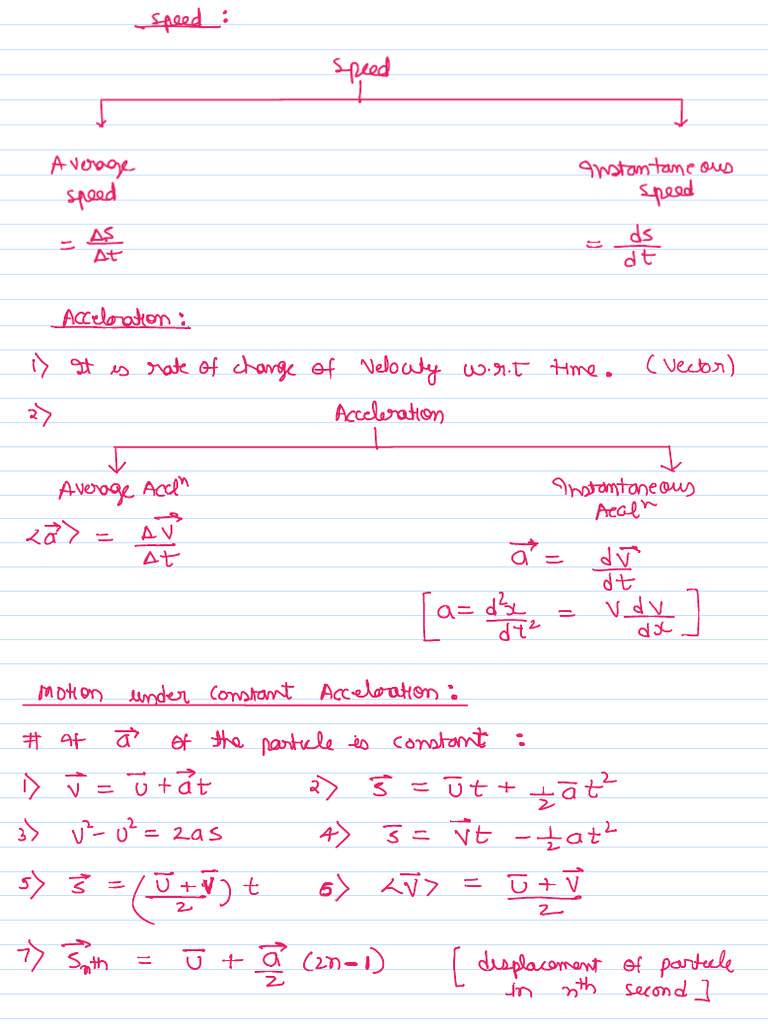 Speed :
Speed
Average Instantaneous
speed speed
= Δs/Δt = ds/dt
Acceleration :
1) It is rate of change of velocity w.r.t time. (Vector)
2) Acceleration
Average Acclⁿ Instantaneous
Accalⁿ
<a⃗> = Δv⃗/Δt
a⃗ = dv⃗/dt
[a = d²x/dt² = v dv/dx]
Motion under constant Acceleration :
# If a⃗ of the particle is constant :
1) v⃗ = u̅ + a⃗t 2) s⃗ = u̅t + 1/2 a̅t²
3) v² - u² = 2as 4) s̅ = v⃗t - 1/2 at²
5) s⃗ = (u̅ + v⃗/2) t 6) <v⃗> = u̅ + v⃗/2
7) s⃗ₙth = u̅ + a⃗/2 (2n-1) [displacement of particle
in nth second]